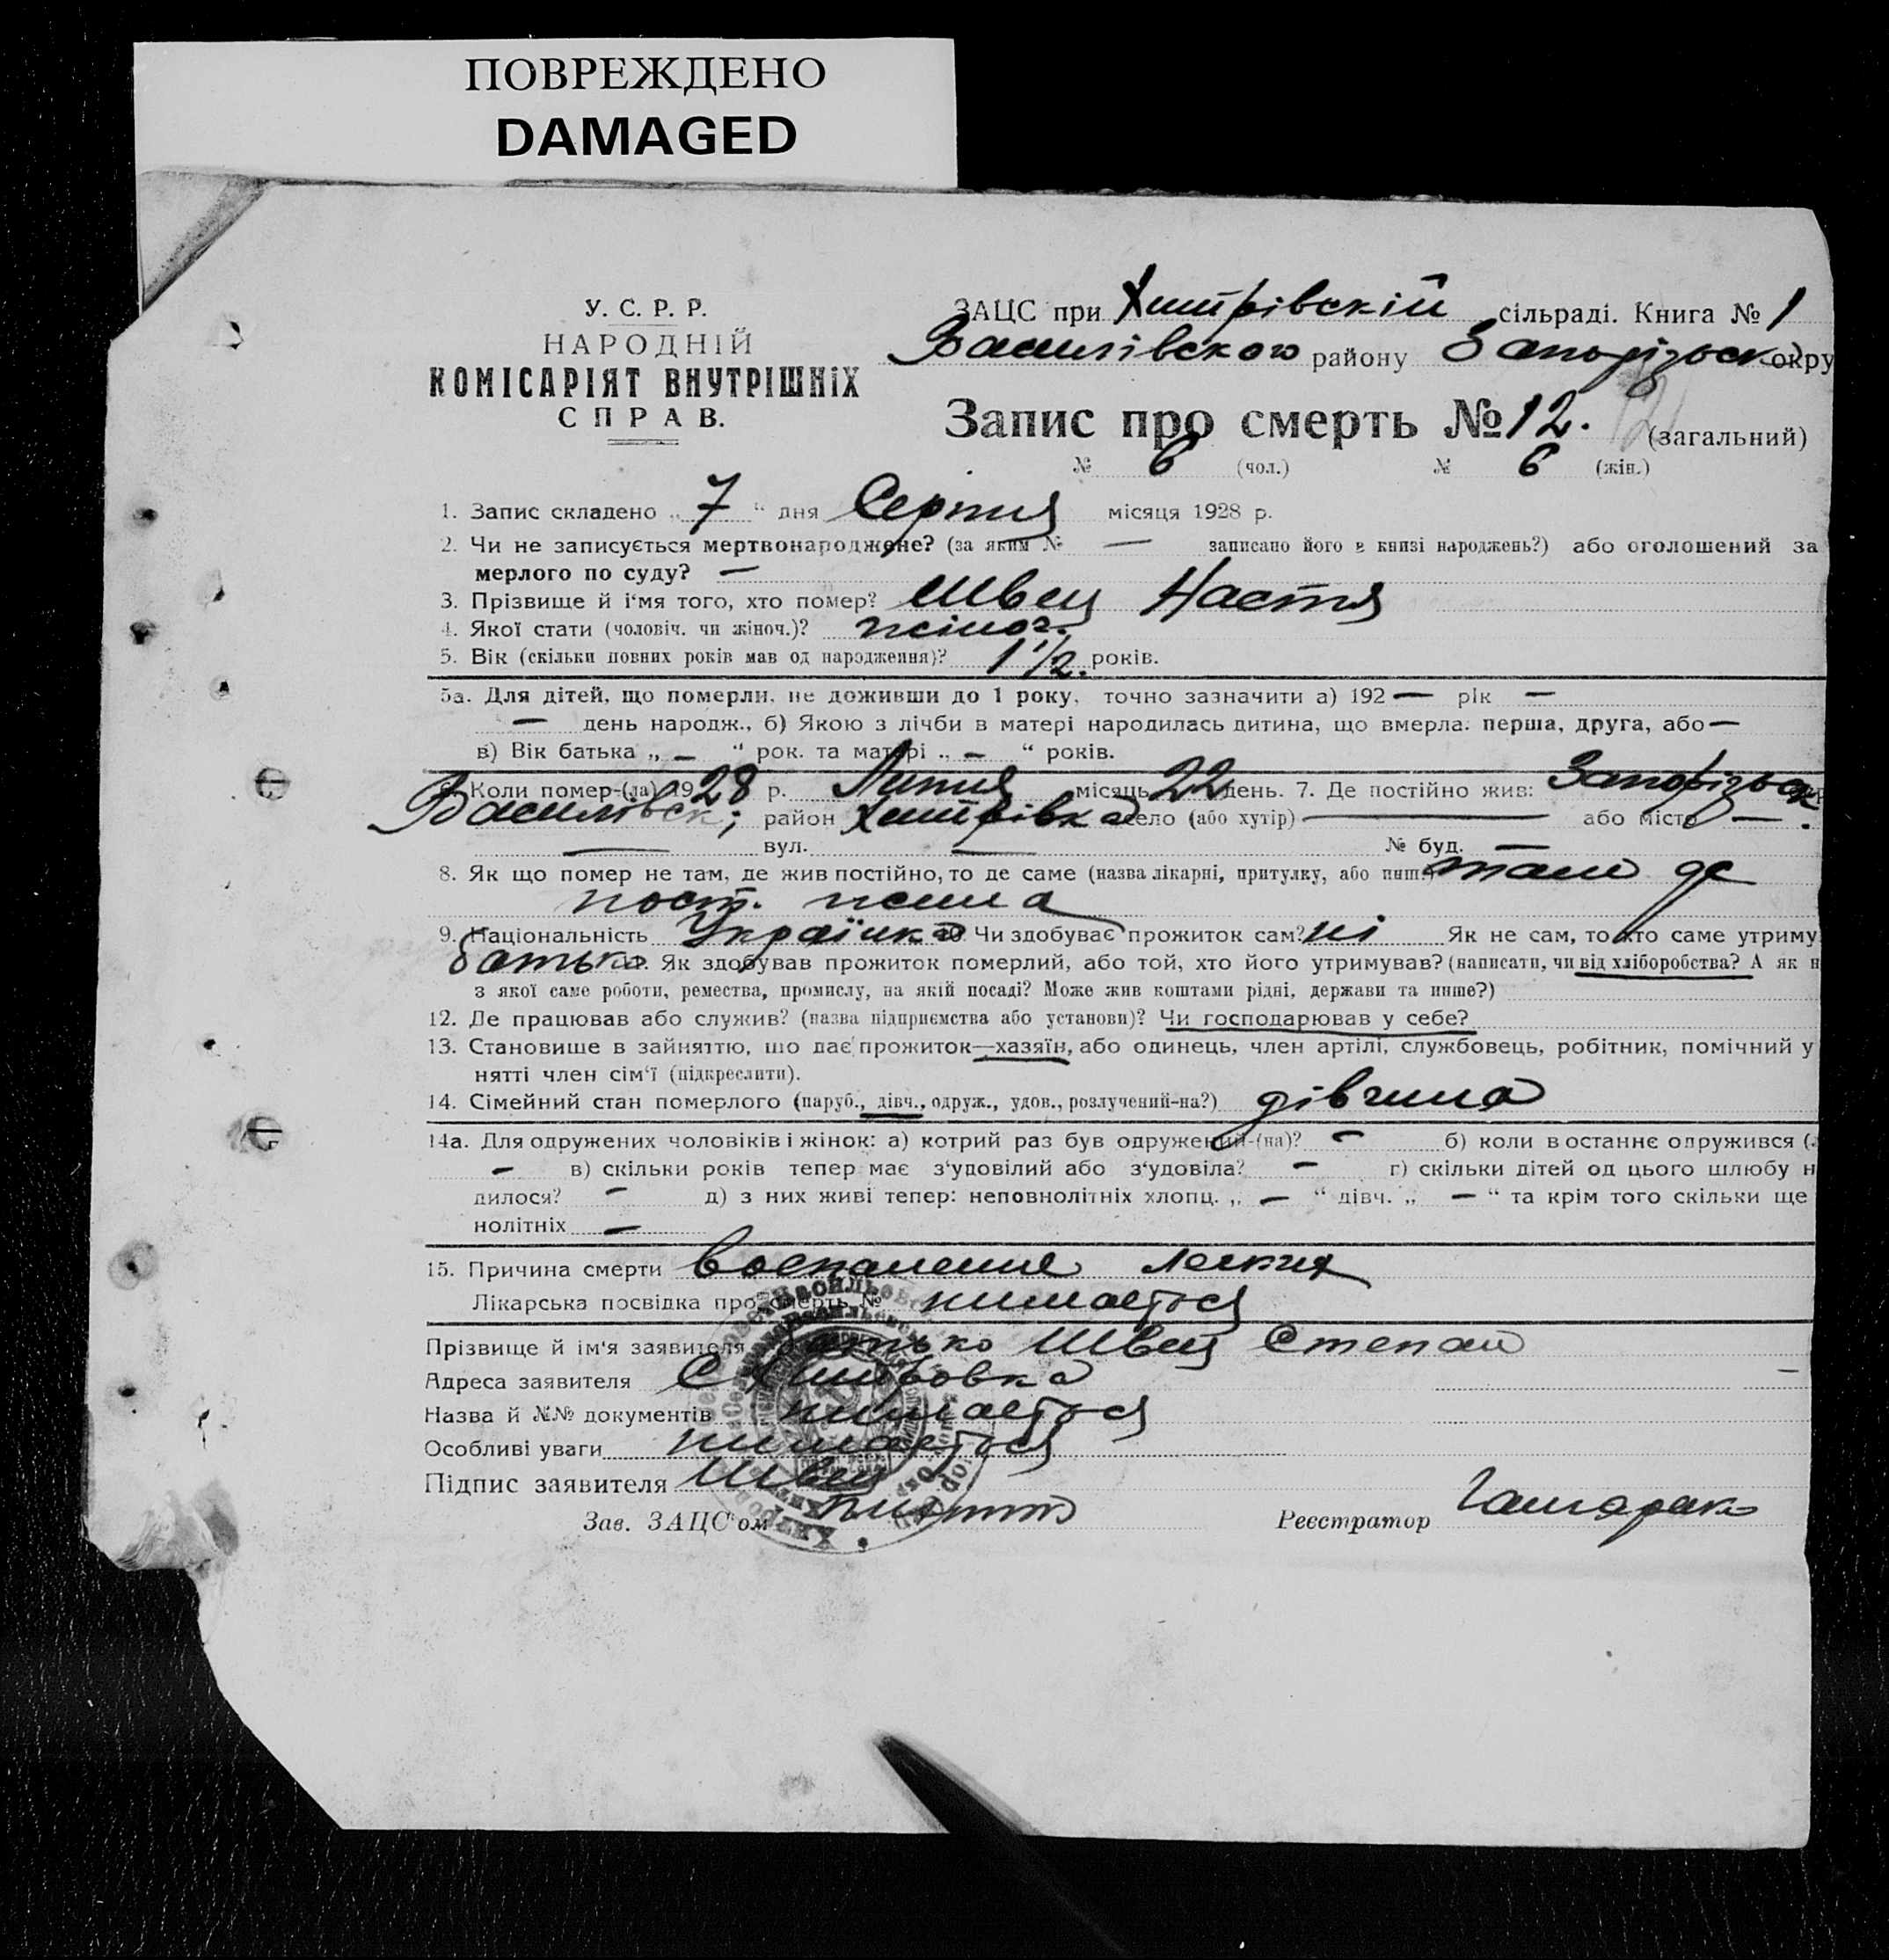 ПОВРЕЖДЕНО
DAMAGED
У. С. Р. Р.
НАРОДНІЙ
КОМІСАРІЯТ ВНУТРІШНІХ
СПРАВ.
ЗАЦС при Хитрівскій сільраді. Книга № 1
Василівского району Запорізьск окру
Запис про смерть № 12. 12 (загальний)
№ 6 (чол.) № 6 (жін.)
1. Запис складено „ 7 “ дня Серпня місяця 1928 р.
2. Чи не записується мертвонароджене? (за яким № — записано його в книзі народжень?) або оголошений за
мерлого по суду? —
3. Прізвище й і‘мя того, хто помер? Швец Настя
4. Якої стати (чоловіч. чи жіноч.)? жіноч.
5. Вік (скільки повних років мав од народження)? 1 1/2. років.
5а. Для дітей, що померли, не доживши до 1 року, точно зазначити а) 192 — рік —
— день народж., б) Якою з лічби в матері народилась дитина, що вмерла: перша, друга, або —
в) Вік батька „ — “ рок. та матері „ — “ років.
Коли помер-(ла) 1928 р. Липня місяць 22 день. 7. Де постійно жив: Запорізьск
Василівск; район Хитрівка село (або хутір) — або місто —.
— вул. — № буд. —
8. Як що помер не там, де жив постійно, то де саме (назва лікарні, притулку, або инш.) там де
пост. жила
9. Національність Українка Чи здобуває прожиток сам? ні Як не сам, то хто саме утриму
батько. Як здобував прожиток померлий, або той, хто його утримував? (написати, чи від хліборобства? А як н
з якої саме роботи, ремества, промислу, на якій посаді? Може жив коштами рідні, держави та инше?)
12. Де працював або служив? (назва підприємства або установи)? Чи господарював у себе?
13. Становище в зайняттю, що дає прожиток—хазяїн, або одинець, член артілі, службовець, робітник, помічний у
нятті член сім‘ї (підкреслити).
14. Сімейний стан померлого (паруб., дівч., одруж., удов., розлучений-на?) дівчина
14а. Для одружених чоловіків і жінок: а) котрий раз був одружений-(на)? — б) коли востаннє одружився (
— в) скільки років тепер має з‘удовілий або з‘удовіла? — г) скільки дітей од цього шлюбу н
дилося? — д) з них живі тепер: неповнолітніх хлопц. „ — “ дівч. „ — “ та крім того скільки ще
нолітніх —
15. Причина смерти воспаление легких
Лікарська посвідка про смерть № нимається
Прізвище й ім‘я заявителя батько Швец Степан
Адреса заявителя С Хитровка —
Назва й №№ документів нимається
Особливі уваги нимається
Підпис заявителя Швец
Зав. ЗАЦС‘ом
Реєстратор